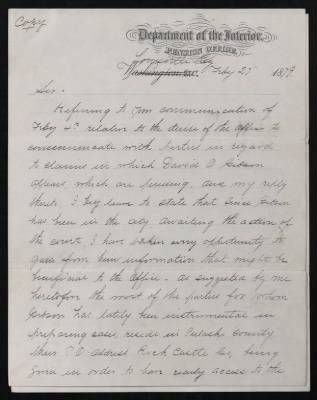 Copy
Department of the Interior,
PENSION OFFICE,
Washington, D.C. Feby 27 1879.
Sir.
Referring to your communication of
Feby 4th relative to the desire of the Office to
communicate with parties in regard
to claims in which David O
appears, which are pending, and my reply
thereto, I beg leave to state that since
has been in the city awaiting the action of
the court, I have taken every opportunity to
gain from him information that might be
beneficial to the Office. As suggested by me
heretofore the most of the parties for whom
has lately been instrumental in
preparing cases, reside in Pulaski County,
their P.O. address Rock Castle Co, being
given in order to have ready access to the